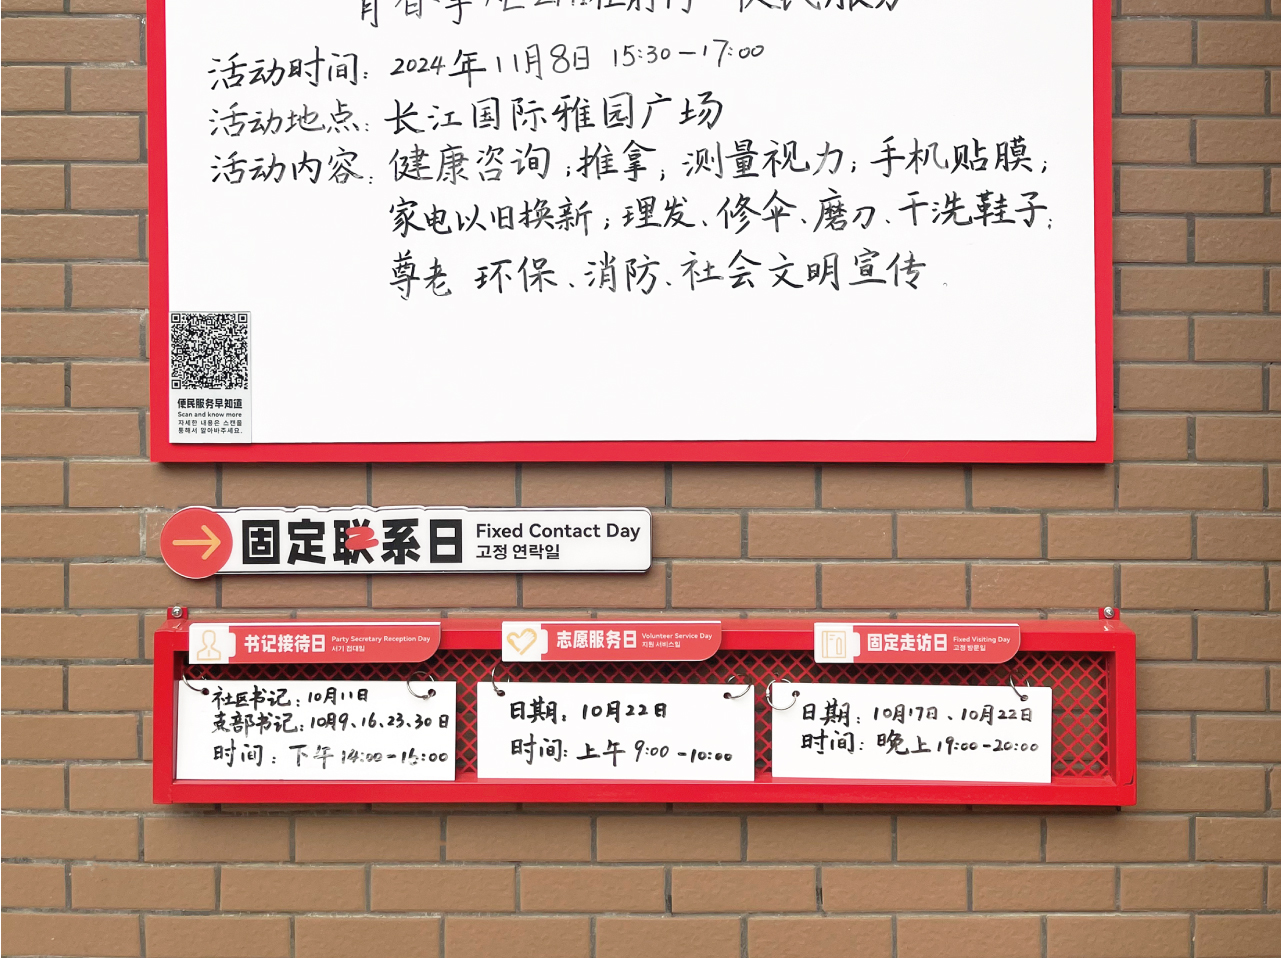 活动时间：2024年11月8日 15:30-17:00
活动地点：长江国际雅园广场
活动内容：健康咨询；推拿；测量视力；手机贴膜；
家电以旧换新；理发、修伞、磨刀、干洗鞋子；
尊老 环保、消防、社会文明宣传。
便民服务早知道
Scan and know more
자세한 내용은 스캔을
통해서 알아봐주세요.
固定联系日 Fixed Contact Day
고정 연락일
书记接待日 Party Secretary Reception Day
서기 접대일
社区书记：10月11日
支部书记：10月9、16、23、30日
时间：下午14:00-15:00
志愿服务日 Volunteer Service Day
지원 서비스일
日期：10月22日
时间：上午9:00-10:00
固定走访日 Fixed Visiting Day
고정 방문일
日期：10月17日、10月22日
时间：晚上19:00-20:00